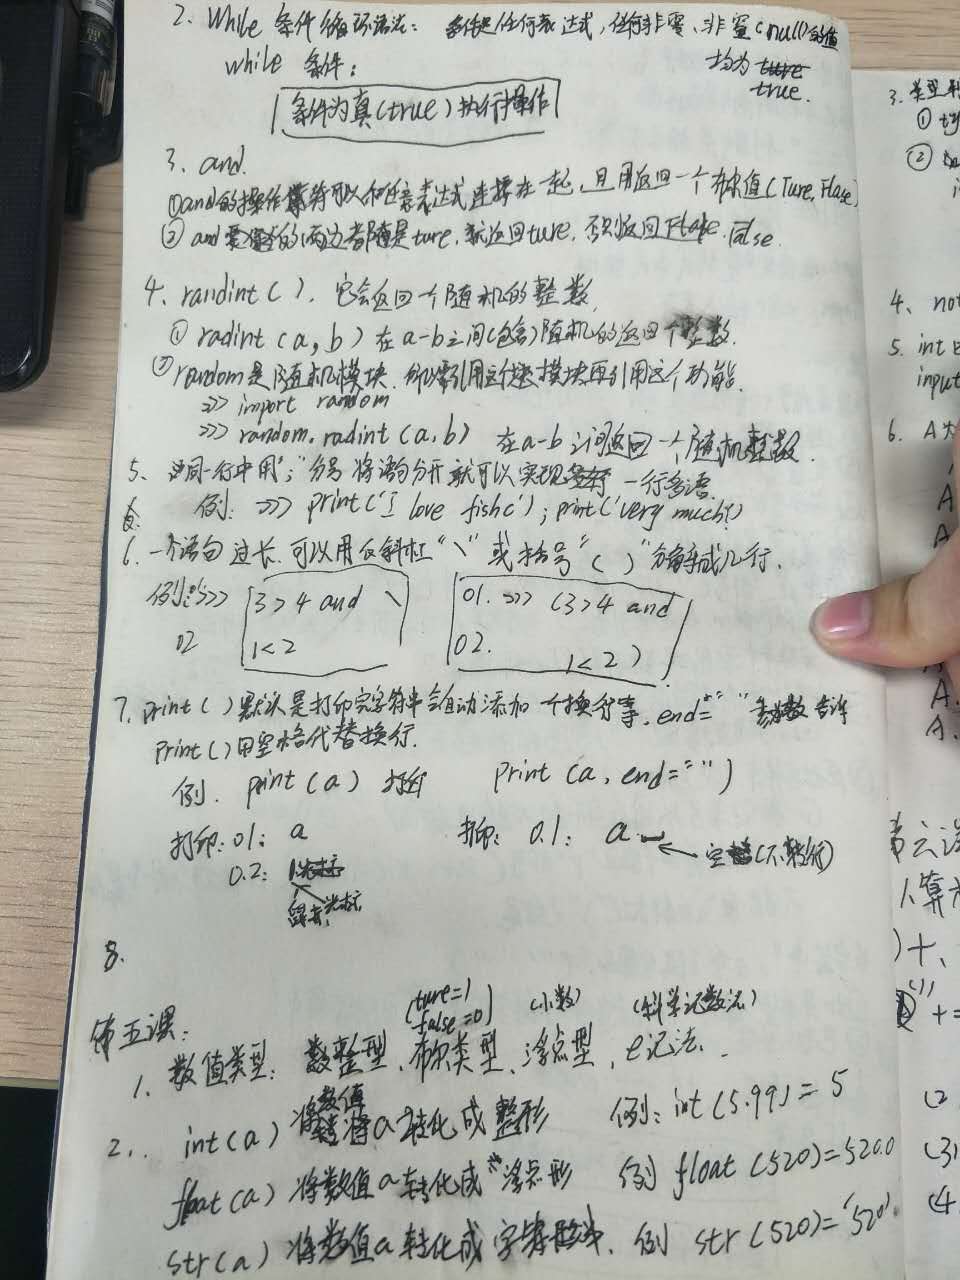 2、While 条件循环语法: 条件是任何表达式,任何非零、非空(null)的值
均为 ture
true.
while 条件:
条件为真(true)执行操作
3. and.
①and的操作符可以将任意表达式连接在一起,且用返回一个布尔值(Ture, Flase)
② and 的两边都是ture,就返回ture,否则返回Flase. False
4、randint(),它会返回一个随机的整数
① radint(a,b) 在a-b之间(包含)随机的返回个整数.
②random是随机模块,所以需引用这个模块再引用这个功能.
>>> import random
>>> random.radint(a,b) 在a-b之间返回一个随机整数.
5、同一行中用“;”分号将语句分开就可以实现 一行多语.
例: >>> print('I love fishc'); print('very much!')
6、一个语句过长,可以用反斜杠“\”或括号“()”分解成几行.
例: >>> 3>4 and \
02 1<2
01. >>> (3>4 and
02. 1<2)
7、print()默认是打印完字符串会自动添加一个换行等, end=" " 参数告诉
print()用空格代替换行.
例. print(a) 打印 print(a, end=" ")
打印: 01: a 打印: 0.1: a ← 空格(不换行)
0.2: 光标
8.
第五课:
(ture=1 false=0) (小数) (科学记数法)
1、数值类型: 整型、布尔类型、浮点型、e记法.
2、. int(a) 将数值a转化成整形 例: int(5.99)=5
float(a) 将数值a转化成浮点形 例 float(520)=520.0
str(a) 将数值a转化成字符串. 例 str(520)='520'.
3. 类型
①
②
4、not
5. int
input
6. A
A
A.
A.